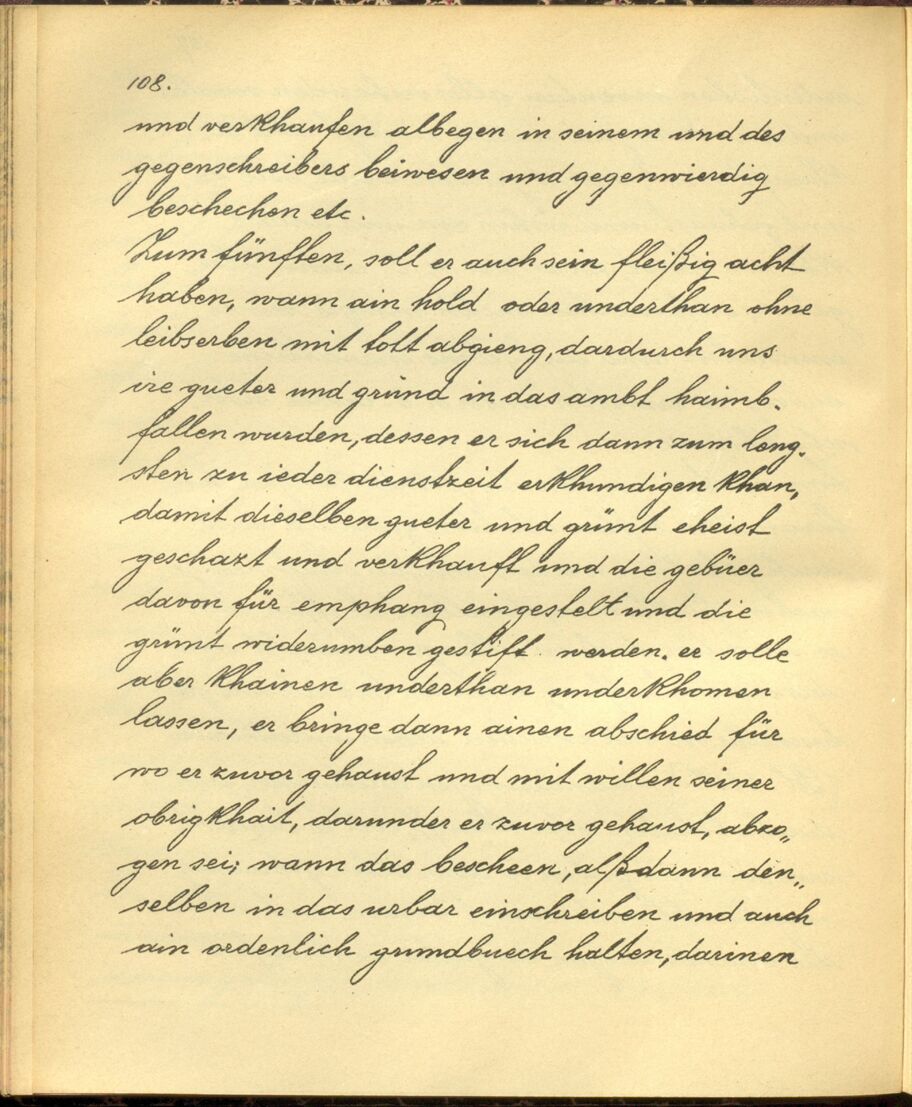 108.
und verkhaufen albegen in seinem und des
gegenschreibers beiwesen und gegenwierdig
beschechen etc.
Zum fünften, soll er auch sein fleißig acht
haben, wann ain hold oder underthan ohne
leibserben mit tott abgieng, dardurch uns
ire gueter und gründ in das ambt haimb-
fallen wurden, dessen er sich dann zum leng-
sten zu ieder dienstzeit erkhundigen khan,
damit dieselben gueter und grünt eheist
geschazt und verkhauft und die gebüer
davon für emphang eingestelt und die
grünt widerumben gestift werden. er solle
aber khainen underthan underkhomen
lassen, er bringe dann ainen abschied für
wo er zuvor gehaust und mit willen seiner
obrigkhait, darunder er zuvor gehaust, abzo„
gen sei; wann das bescheen, alßdann den„
selben in das urbar einschreiben und auch
ain ordenlich grundbuech halten, darinen